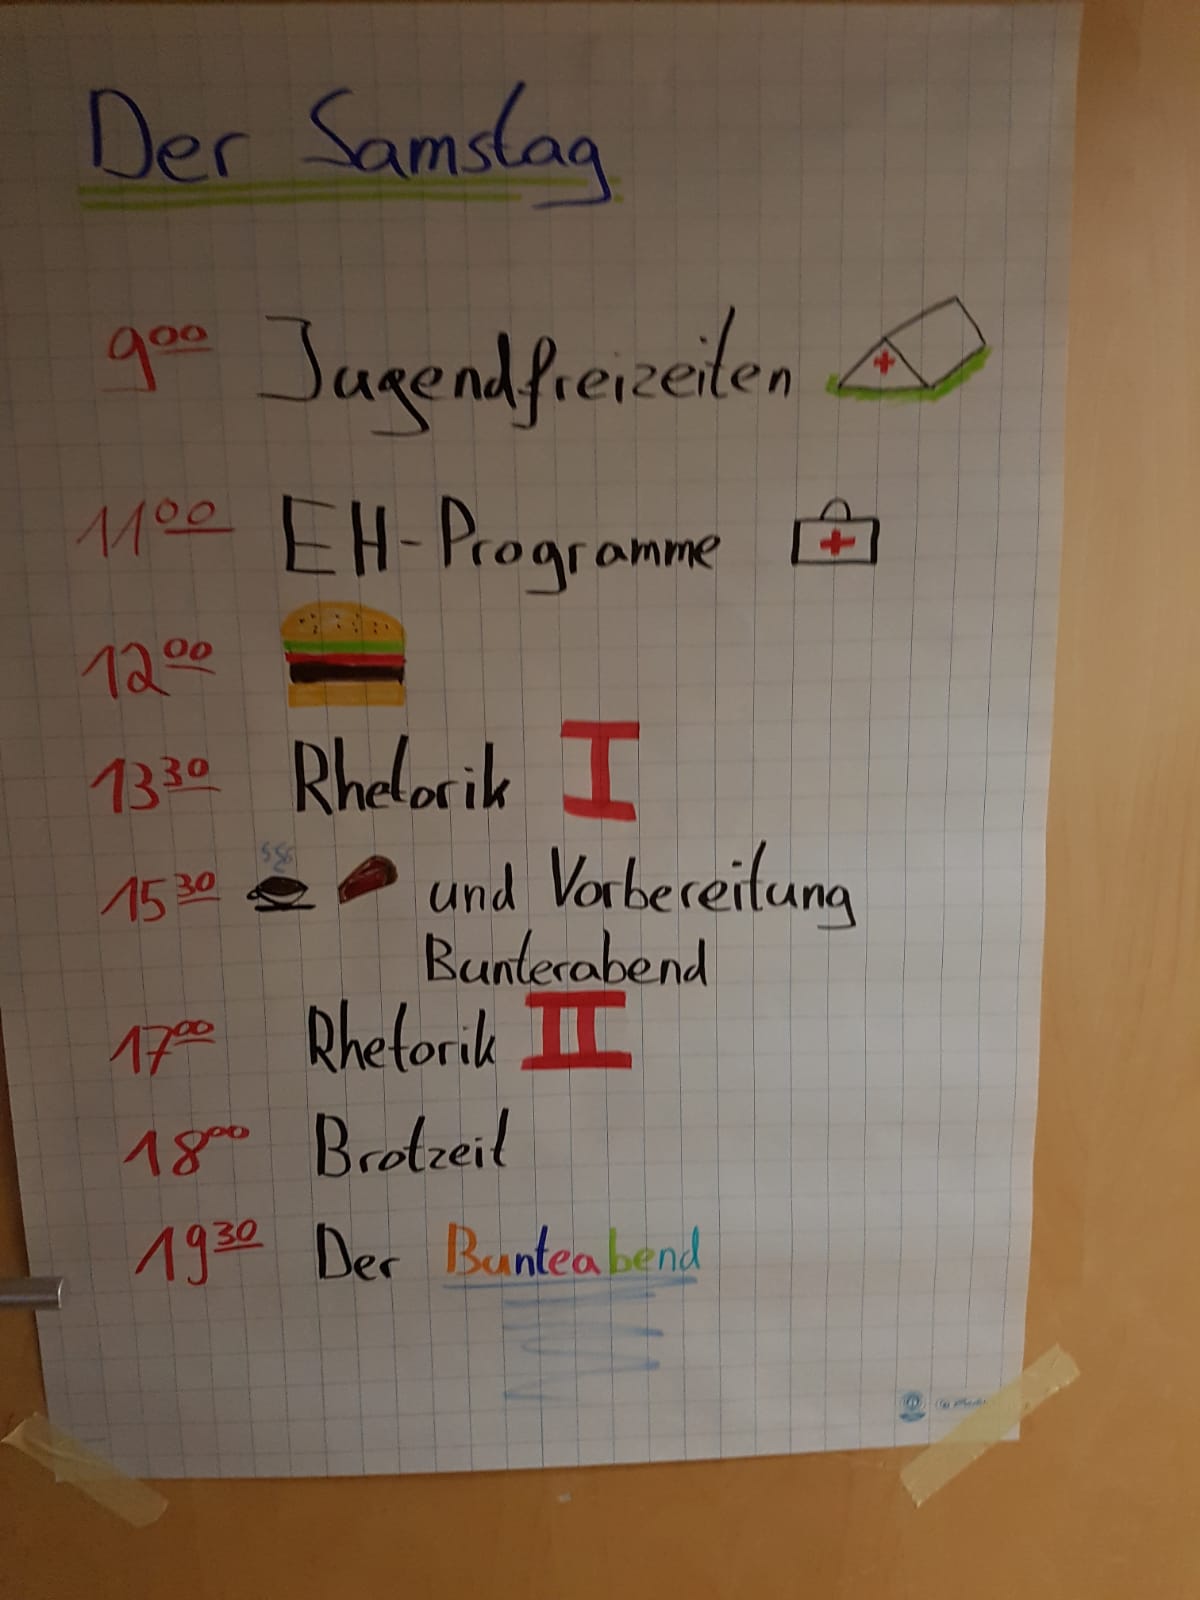 Der Samstag
9⁰⁰ Jugendfreizeiten
11⁰⁰ EH-Programme
12⁰⁰
13³⁰ Rhetorik I
15³⁰ und Vorbereitung
Bunterabend
17⁰⁰ Rhetorik II
18⁰⁰ Brotzeit
19³⁰ Der Bunteabend